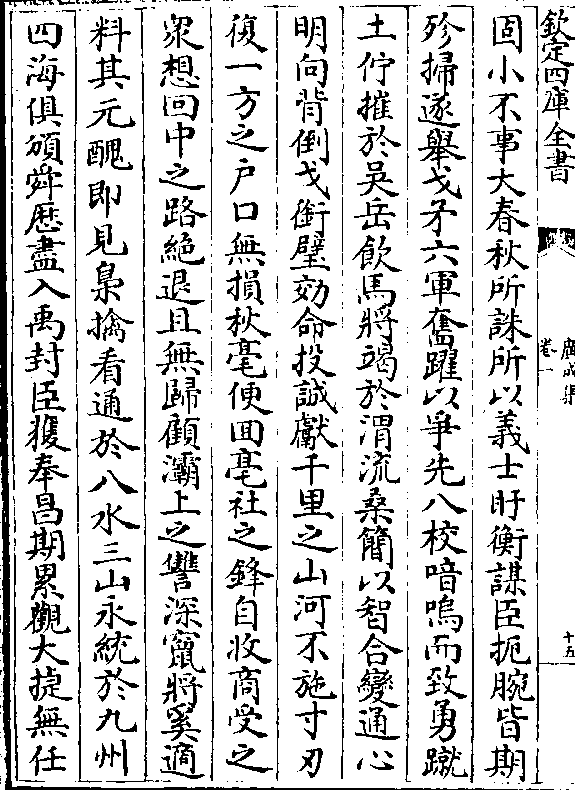 欽定四庫全書
廣成集
卷一
十五
固小不事大春秋所誅所以義士盱衡謀臣扼腕皆期
殄掃遂舉戈矛六軍奮躍以爭先八校喑嗚而致勇蹴
土佇摧於吳岳飲馬將竭於渭流桑簡以智合變通心
明向背倒戈銜璧効命投誠獻千里之山河不施寸刃
復一方之戶口無損秋毫便回亳社之鋒自收商受之
衆想回中之路絶退且無歸顧灞上之讐深竄將奚適
料其元醜即見梟擒看通於八水三山永統於九州
四海俱頒舜歴盡入禹封臣獲奉昌期累觀大捷無任